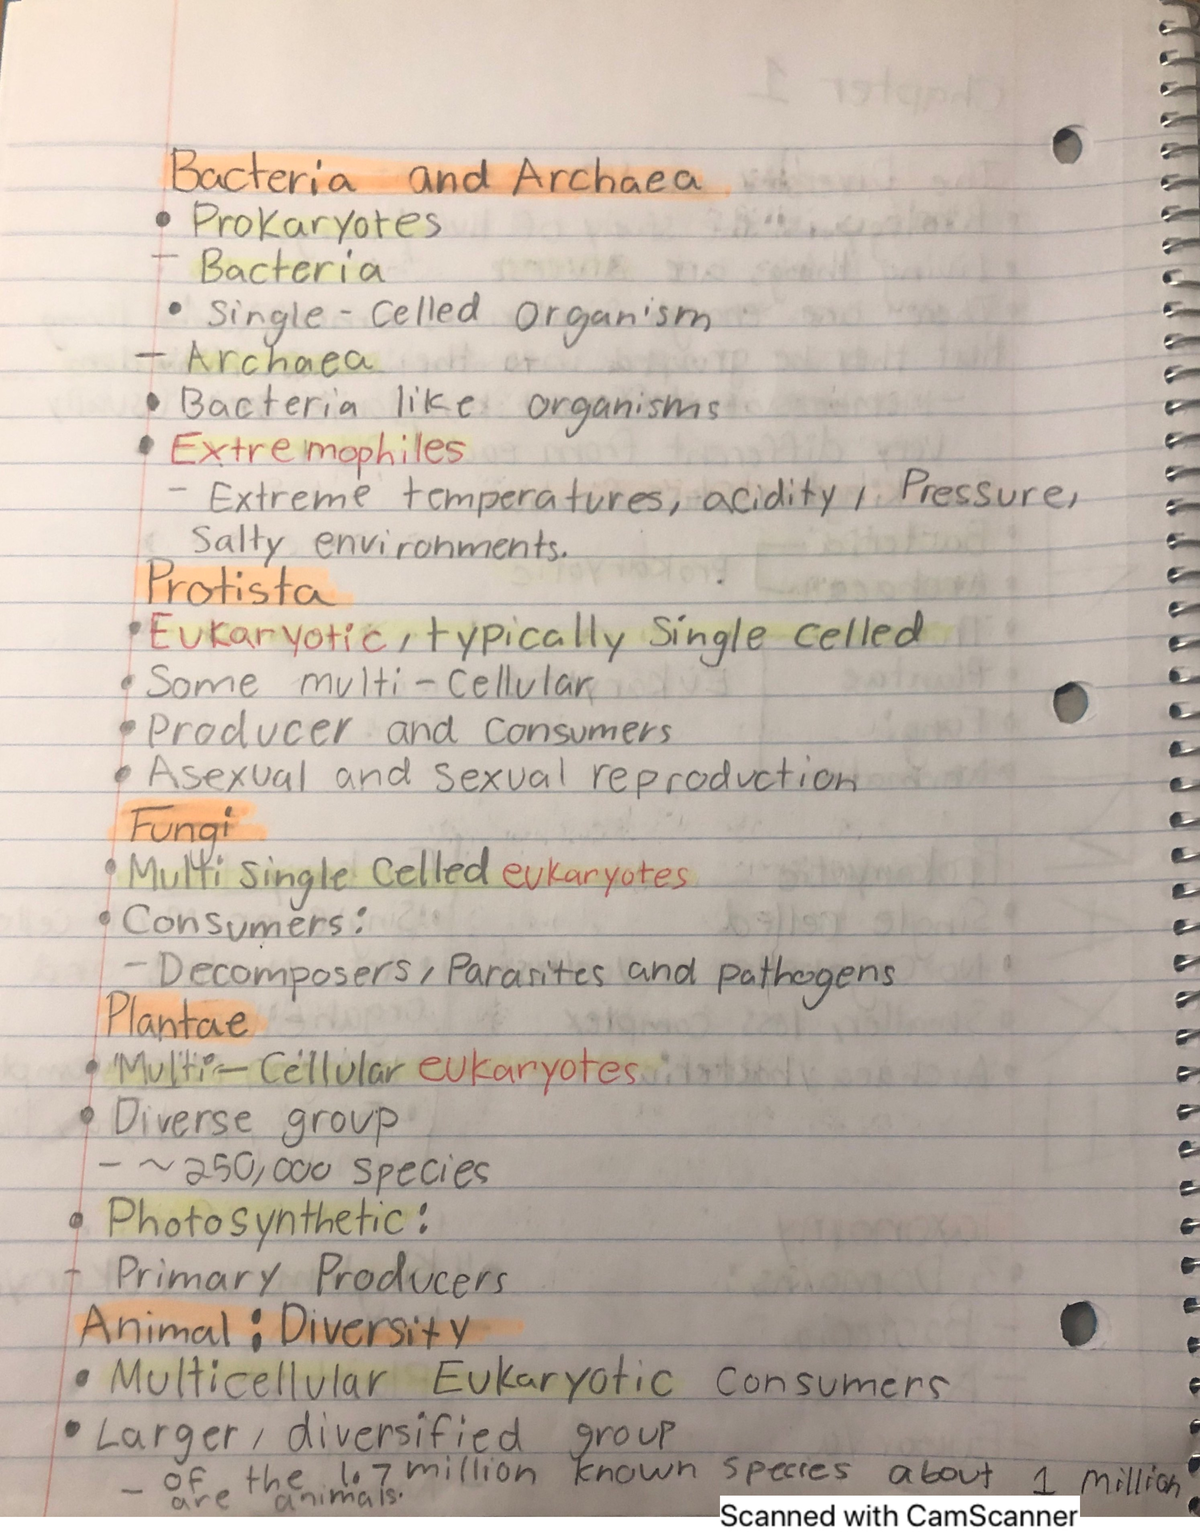 Bacteria and Archaea
• Prokaryotes
- Bacteria
• Single-celled organism
- Archaea
• Bacteria like organisms
• Extremophiles
- Extreme temperatures, acidity, Pressure,
Salty environments.
Protista
• Eukaryotic, typically Single celled
• Some multi-cellular
• Producer and consumers
• Asexual and sexual reproduction
Fungi
• Multi single celled eukaryotes
• Consumers:
- Decomposers, Parasites and pathogens
Plantae
• Multi-Cellular eukaryotes
• Diverse group
- ~250,000 species
• Photosynthetic:
- Primary Producers
Animal: Diversity
• Multicellular Eukaryotic consumers
• Larger, diversified group
- of the 1.7 million known species about 1 million
are animals.
Scanned with CamScanner